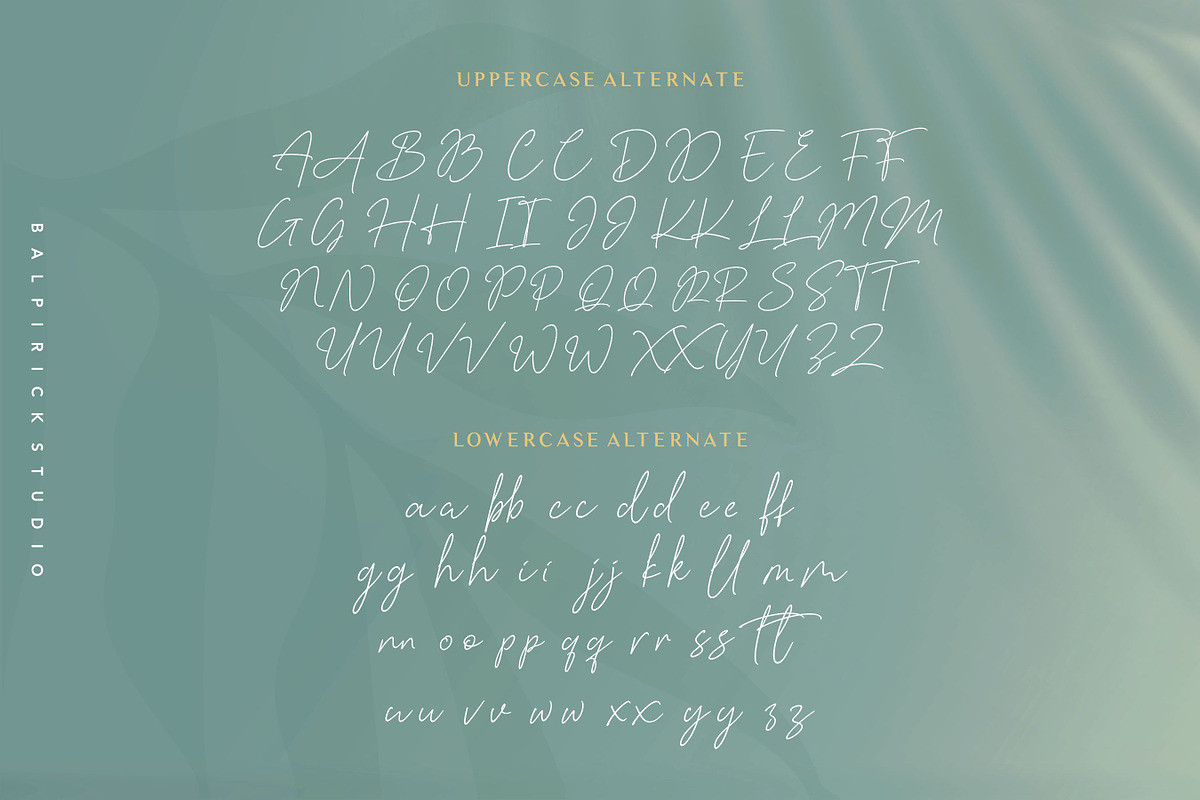 UPPERCASE ALTERNATE
AA BB CC DD EE FF
GG HH II JJ KK LL MM
NN OO PP QQ RR SS TT
UU VV WW XX YY ZZ
LOWERCASE ALTERNATE
aa bb cc dd ee ff
gg hh ii jj kk ll mm
nn oo pp qq rr ss tt
uu vv ww xx yy zz
BALPIRICK STUDIO